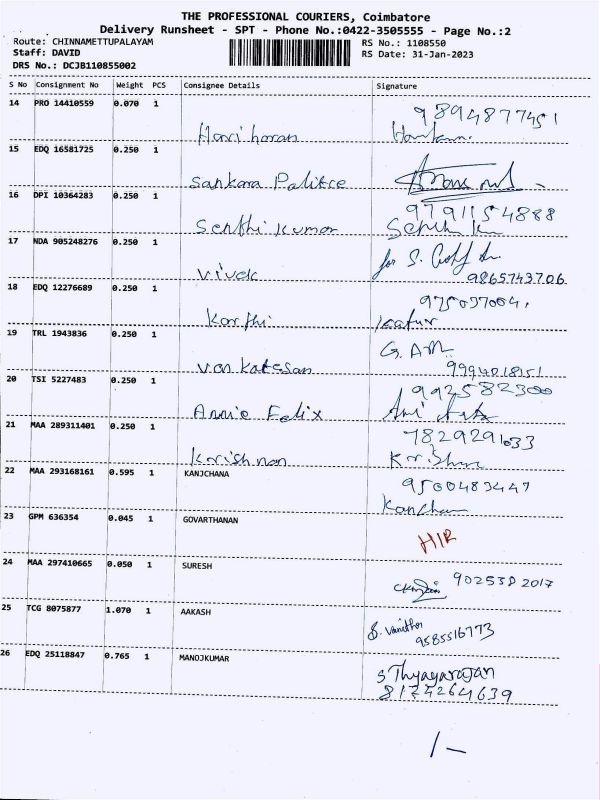 THE PROFESSIONAL COURIERS, Coimbatore
Delivery Runsheet - SPT - Phone No.:0422-3505555 - Page No.:2
Route: CHINNAMETTUPALAYAM
RS No.: 1108550
Staff: DAVID
RS Date: 31-Jan-2023
DRS No.: DCJB110855002
S No Consignment No Weight PCS Consignee Details Signature
14 PRO 14410559 0.070 1 Hariharan 9894877451
15 EDQ 16581725 0.250 1 Sankara Politce
16 DPI 10364283 0.250 1 Senthi kumar 9791154888
17 NDA 905248276 0.250 1 Vivek for S. 9865743706
18 EDQ 12276689 0.250 1 Karthi
19 TRL 1943836 0.250 1 Vankatesan G. AM.
20 TSI 5227483 0.250 1 Annie Felix 992582300
21 MAA 289311401 0.250 1 Korishnan 7829291033
22 MAA 293168161 0.595 1 KANJCHANA 9500483447 Kancham
23 GPM 636354 0.045 1 GOVARTHANAN H/R
24 MAA 297410665 0.050 1 SURESH 9025382017
25 TCG 8075877 1.070 1 AAKASH S. Vanitha 9585516773
26 EDQ 25118847 0.765 1 MANOJKUMAR S Thyagarajan 8174264639
1/-